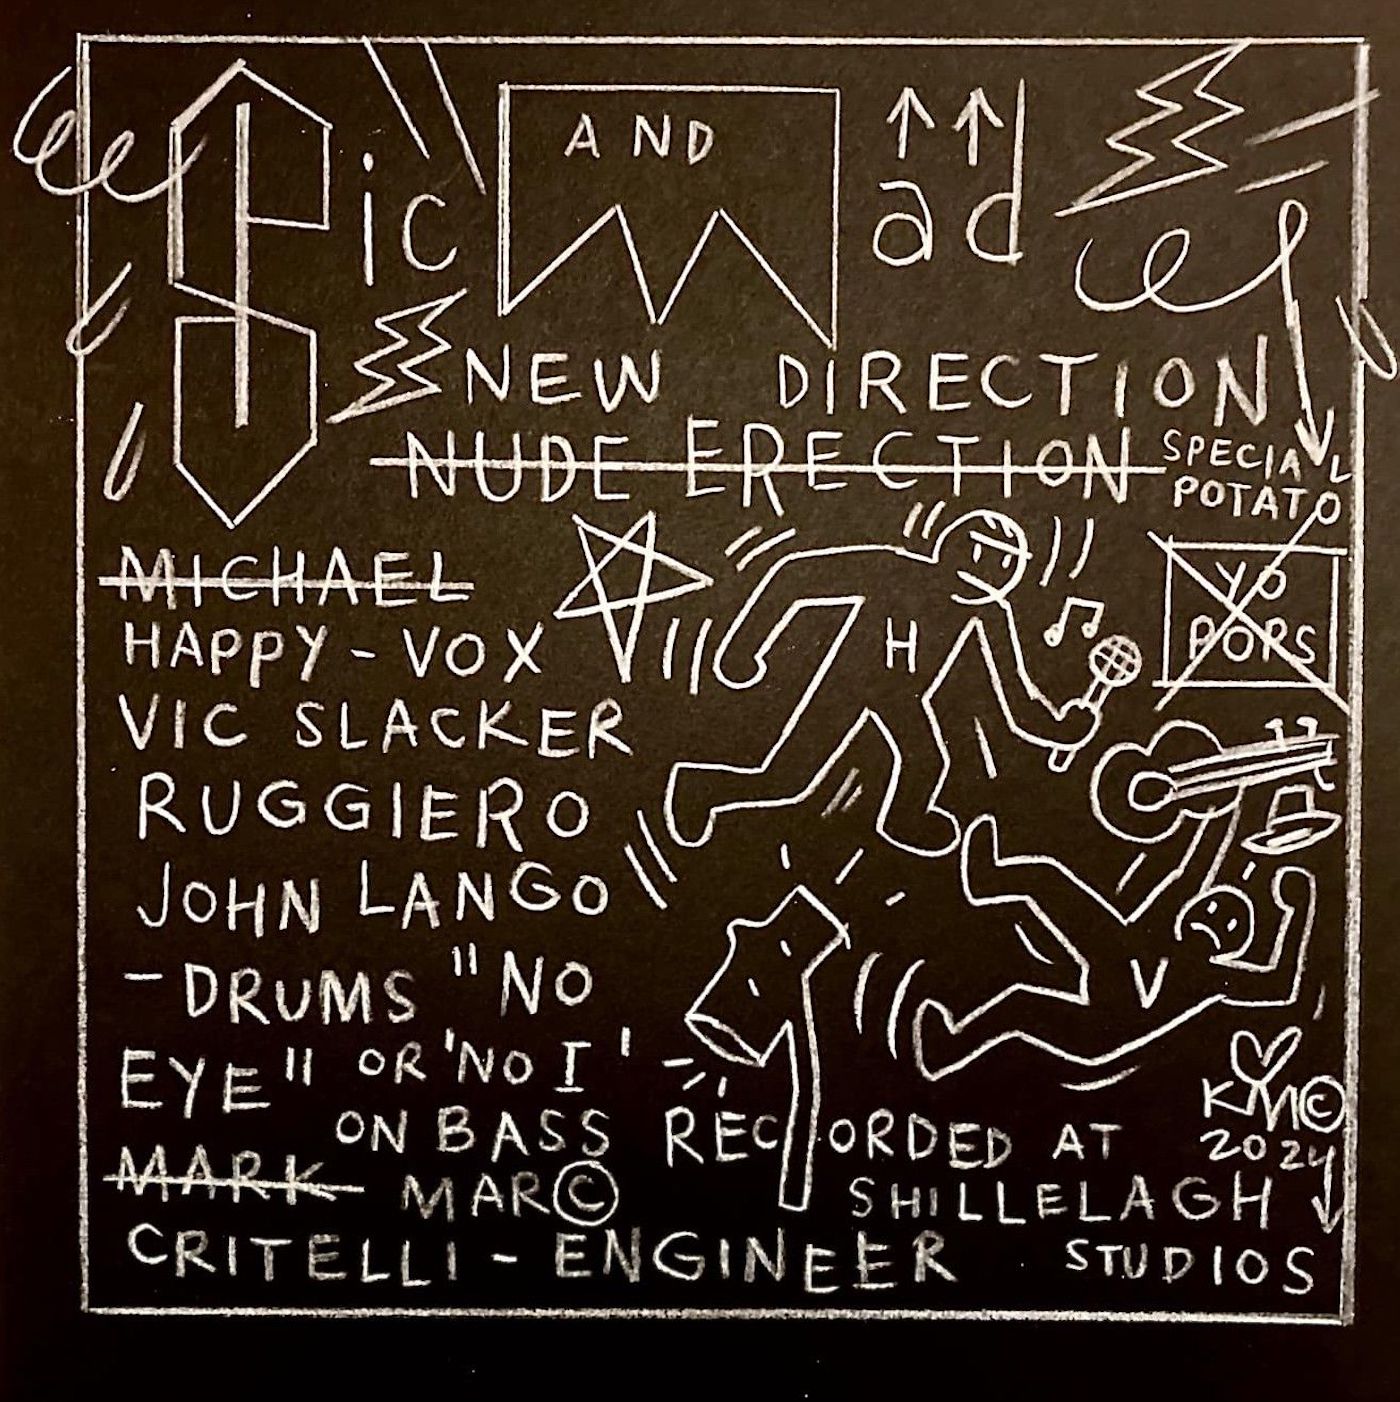 AND Mad
NEW DIRECTION
NUDE ERECTION
SPECIAL
POTATO
YO
PORS
MICHAEL
HAPPY - VOX
VIC SLACKER
RUGGIERO
JOHN LANGO
- DRUMS "NO
EYE" OR 'NO I'
ON BASS
MARK MAR©
CRITELLI - ENGINEER
H
V
RECORDED AT
SHILLELAGH
STUDIOS
©
2024